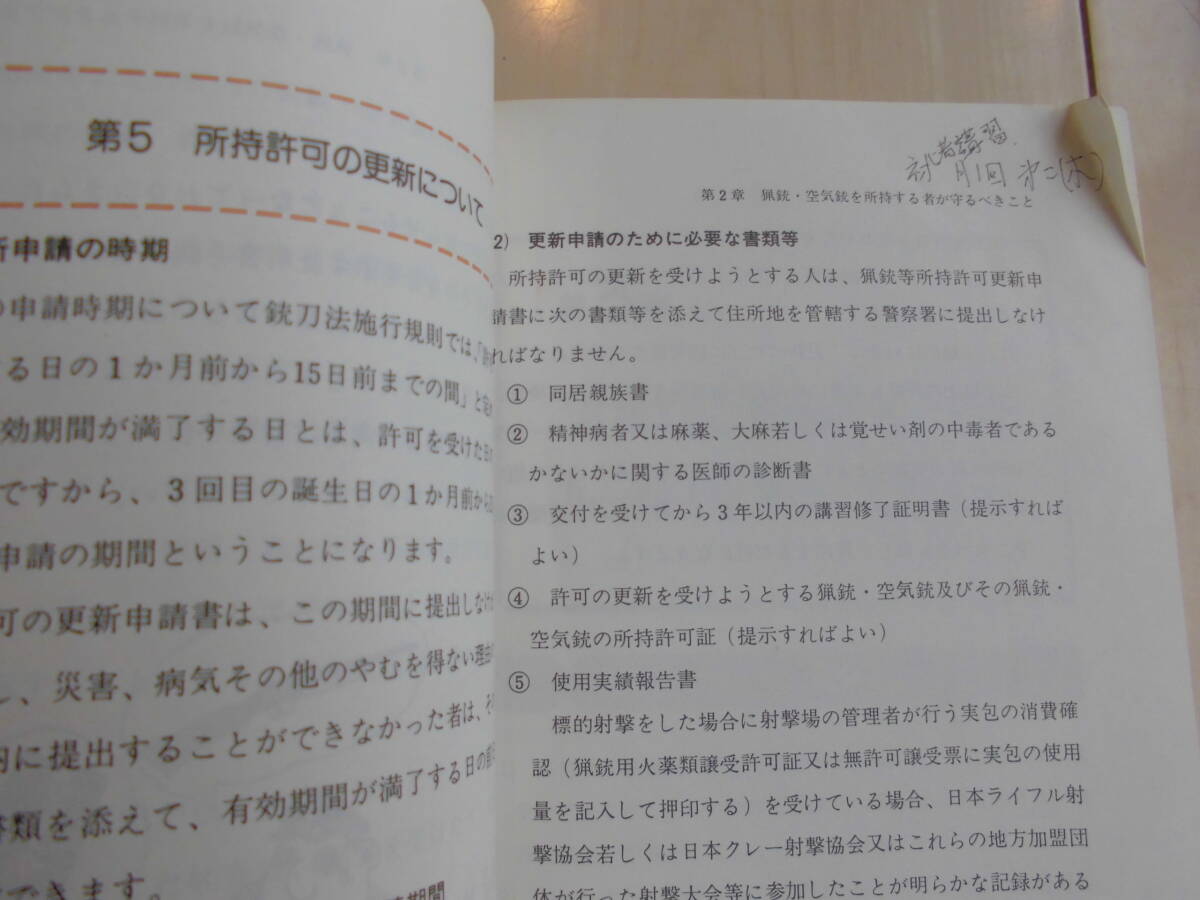 第5 所持許可の更新について
新申請の時期
の申請時期について銃刀法施行規則では、
る日の1か月前から15日前までの間」と定
効期間が満了する日とは、許可を受けた日
ですから、3回目の誕生日の1か月前から
申請の期間ということになります。
可の更新申請書は、この期間に提出しなけ
し、災害、病気その他のやむを得ない理由
内に提出することができなかった者は、そ
書類を添えて、有効期間が満了する日の前
できます。
期間
講習
月1回 (木)
第2章 猟銃・空気銃を所持する者が守るべきこと
2) 更新申請のために必要な書類等
所持許可の更新を受けようとする人は、猟銃等所持許可更新申
請書に次の書類等を添えて住所地を管轄する警察署に提出しなけ
ればなりません。
① 同居親族書
② 精神病者又は麻薬、大麻若しくは覚せい剤の中毒者である
かないかに関する医師の診断書
③ 交付を受けてから3年以内の講習修了証明書(提示すれば
よい)
④ 許可の更新を受けようとする猟銃・空気銃及びその猟銃・
空気銃の所持許可証(提示すればよい)
⑤ 使用実績報告書
標的射撃をした場合に射撃場の管理者が行う実包の消費確
認(猟銃用火薬類譲受許可証又は無許可譲受票に実包の使用
量を記入して押印する)を受けている場合、日本ライフル射
撃協会若しくは日本クレー射撃協会又はこれらの地方加盟団
体が行った射撃大会等に参加したことが明らかな記録がある